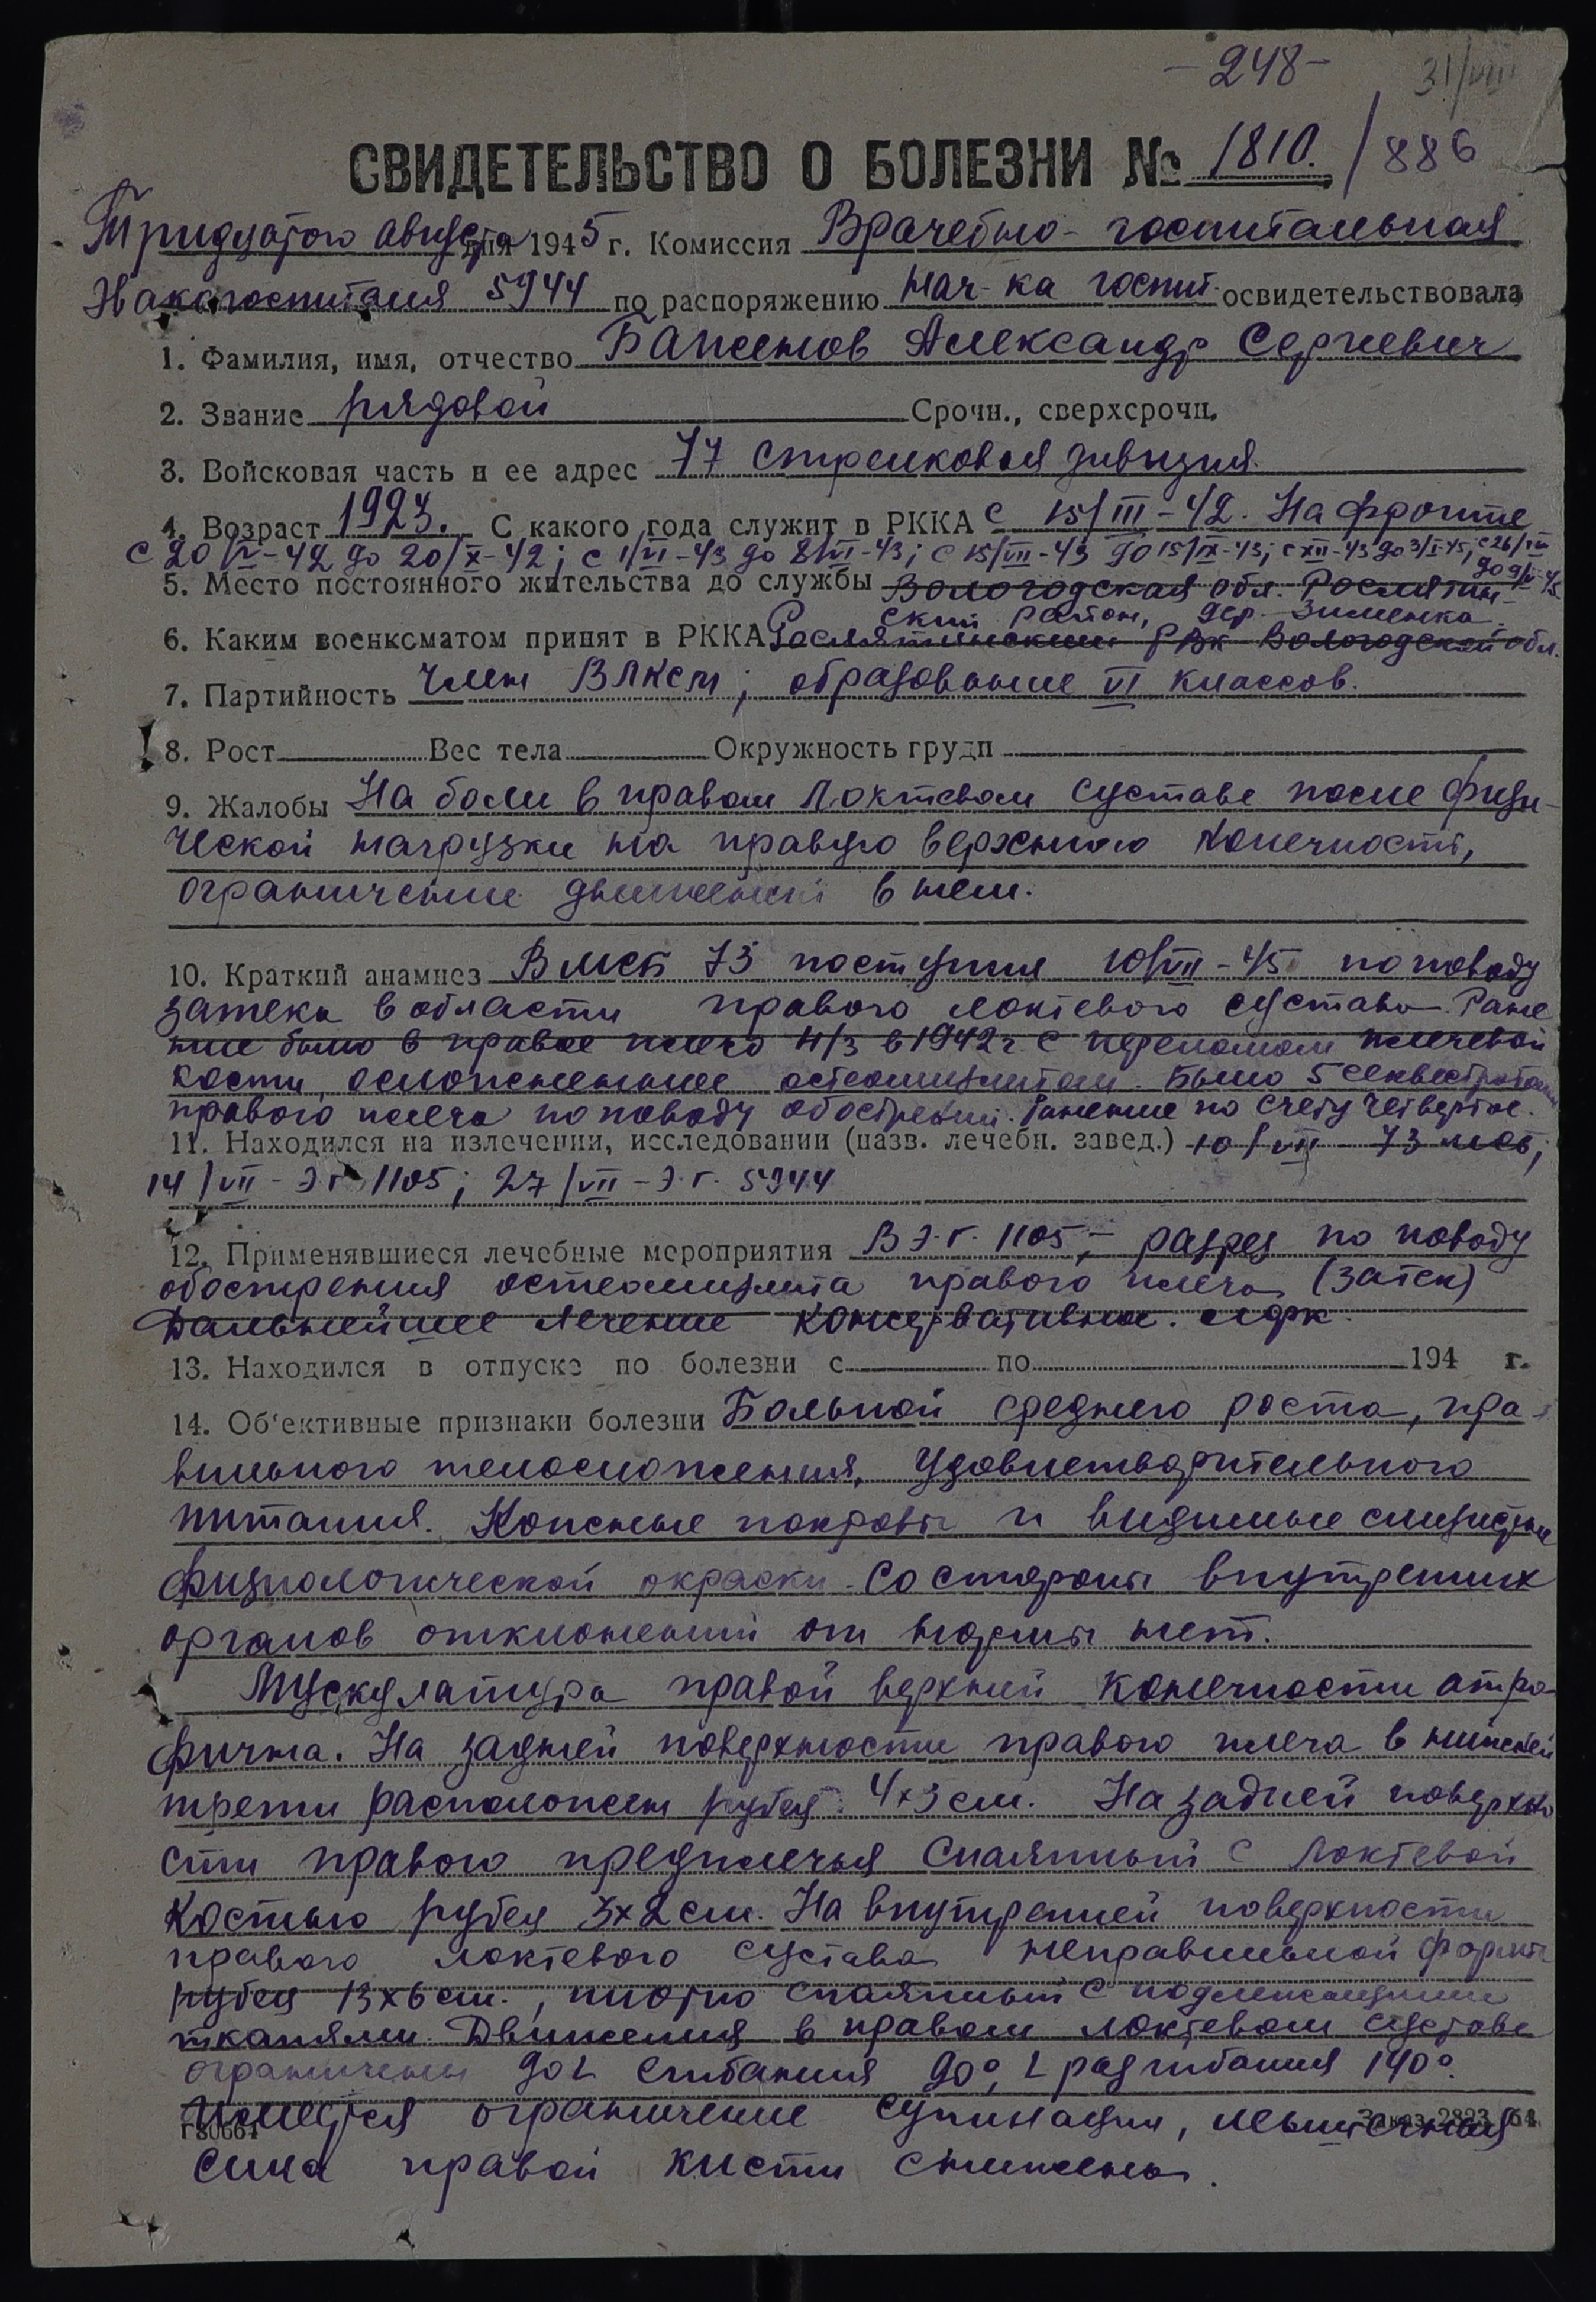 -248-
31/VIII
СВИДЕТЕЛЬСТВО О БОЛЕЗНИ № 1810. /886
Тридцатого августа дня 1945 г. Комиссия Врачебно-госпитальная
Эвакогоспиталя 5944 по распоряжению нач-ка госпит. освидетельствовала
1. Фамилия, имя, отчество Баженов Александр Сергиевич
2. Звание рядовой Срочн., сверхсрочн.
3. Войсковая часть и ее адрес 77 стрелковая дивизия.
4. Возраст 1923. С какого года служит в РККА с 15/III-42. На фронте
с 20/IV-42 до 20/X-42; с 1/VI-43 до 8/VI-43; с 15/VII-43 до 15/IX-43; с XII-43 до 3/I-45; с 26/III
до 9/V-45
5. Место постоянного жительства до службы Вологодская обл. Рослятин-
ский район, дер. Зименка.
6. Каким военкоматом принят в РККА Рослятинским РВК Вологодской обл.
7. Партийность Член ВЛКСМ; образование VI классов.
8. Рост Вес тела Окружность груди
9. Жалобы На боли в правом локтевом суставе после физи-
ческой нагрузки на правую верхнюю конечность,
ограничение движений в нем.
10. Краткий анамнез В МСБ 73 поступил 10/VII-45 по поводу
затека в области правого локтевого сустава. Ране
ние было в правое плечо н/з в 1942 г. с переломом плечевой
кости, осложненные остеомиэлитом. Было 5 секвестротомий
правого плеча по поводу обострений. Ранение по счету четвертое.
11. Находился на излечении, исследовании (назв. лечебн. завед.) 10/VII 73 мсб;
14/VII - Э.Г. 1105; 27/VII - Э.Г. 5944
12. Применявшиеся лечебные мероприятия В Э.Г. 1105, - разрез по поводу
обострения остеомиэлита правого плеча (затек)
Дальнейшее лечение консервативное. ЛФК.
13. Находился в отпуске по болезни с по 194 г.
14. Об'ективные признаки болезни Больной среднего роста, пра-
вильного телосложения, удовлетворительного
питания. Кожные покровы и видимые слизистые
физиологической окраски. Со стороны внутренних
органов отклонений от нормы нет.
Мускулатура правой верхней конечности атро-
фична. На задней поверхности правого плеча в нижней
трети расположен рубец 4х3 см. На задней поверхно
сти правого предплечья спаянный с локтевой
костью рубец 3х2 см. На внутренней поверхности
правого локтевого сустава неправильной формы
рубец 13х6 см., плотно спаянный с подлежащими
тканями. Движения в правом локтевом суставе
ограничены до ∠ сгибания 90°, ∠ разгибания 140°.
Имеется ограничение супинации, мышечная
Г80664 Заказ 2823 64
сила правой кисти снижена.